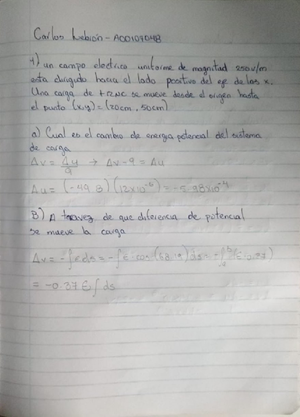 Carlos Lebron - A00107048
1) un campo electrico uniforme de magnitud 250 v/m
esta dirigido hacia el lado positivo del eje de las x.
Una carga de +12uc se mueve desde el origen hasta
el punto (x,y) = (20cm, 50cm)
a) Cual es el cambio de energia potencial del sistema
de carga
Δv = Δu/q → Δv-q = Δu
Δu = (-49.8)(12x10⁻⁶) = -5.98x10⁻⁴
B) A travez de que diferencia de potencial
se mueve la carga
Δv = -∫εds = -∫ε·cos(68.19)ds
= -0.37 ε∫ds